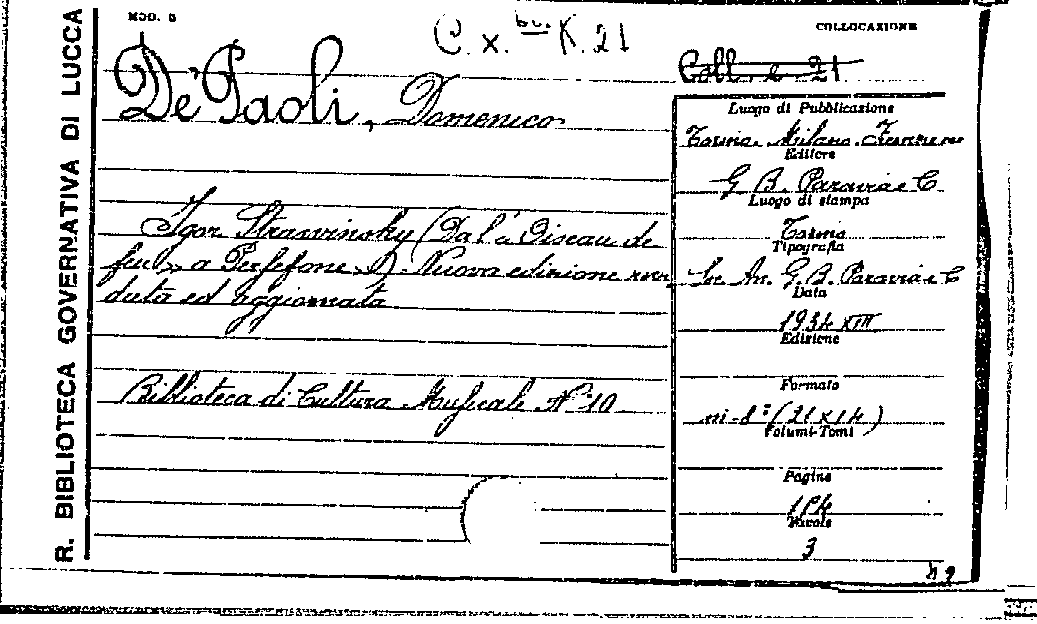 R. BIBLIOTECA GOVERNATIVA DI LUCCA
MOD. 8
C. x. bis K. 21
COLLOCAZIONE
Coll. e 21
De' Paoli, Domenico
Igor Strawinsky (Da L'« Oiseau de
feu » a Persefone »). Nuova edizione rive
duta ed aggiornata
Biblioteca di Cultura Musicale N° 10
Luogo di Pubblicazione
Torino. Milano. Firenze
Editore
G. B. Paravia e C
Luogo di stampa
Torino
Tipografia
So. An. G. B. Paravia e C
Data
1934 XIII
Edizione
Formato
in-8° (21x14)
Volumi-Tomi
Pagine
Tavole
3